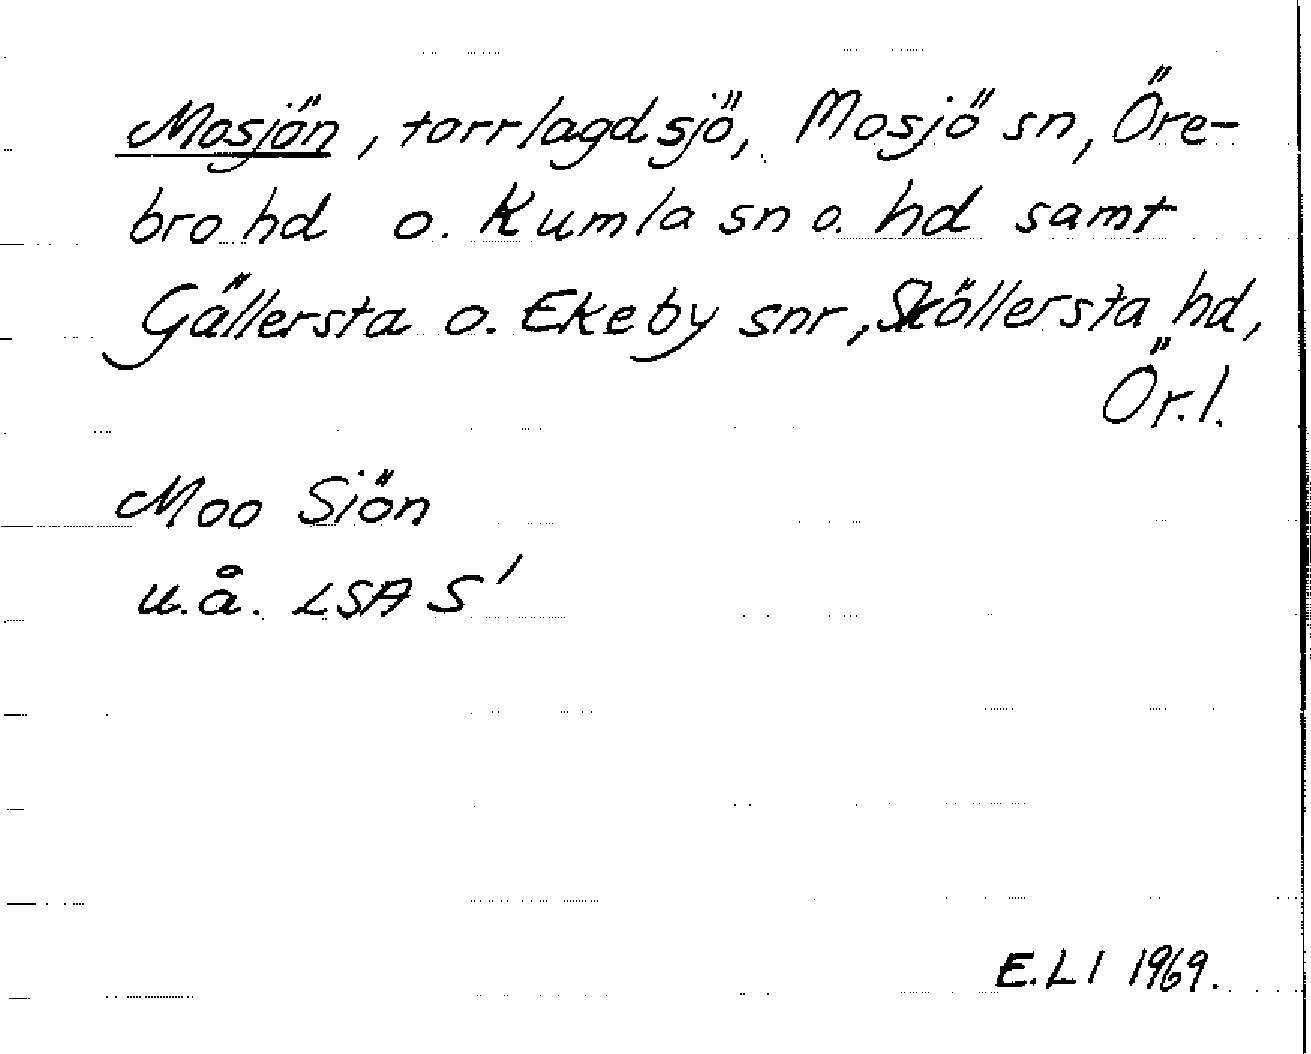 Mosjön, torrlagd sjö, Mosjö sn, Öre-
bro hd o. Kumla sn o. hd samt
Gällersta o. Ekeby snr, Sköllersta hd,
Ör. l.
Moo Siön
u.å. LSA S'
E.L I 1969.